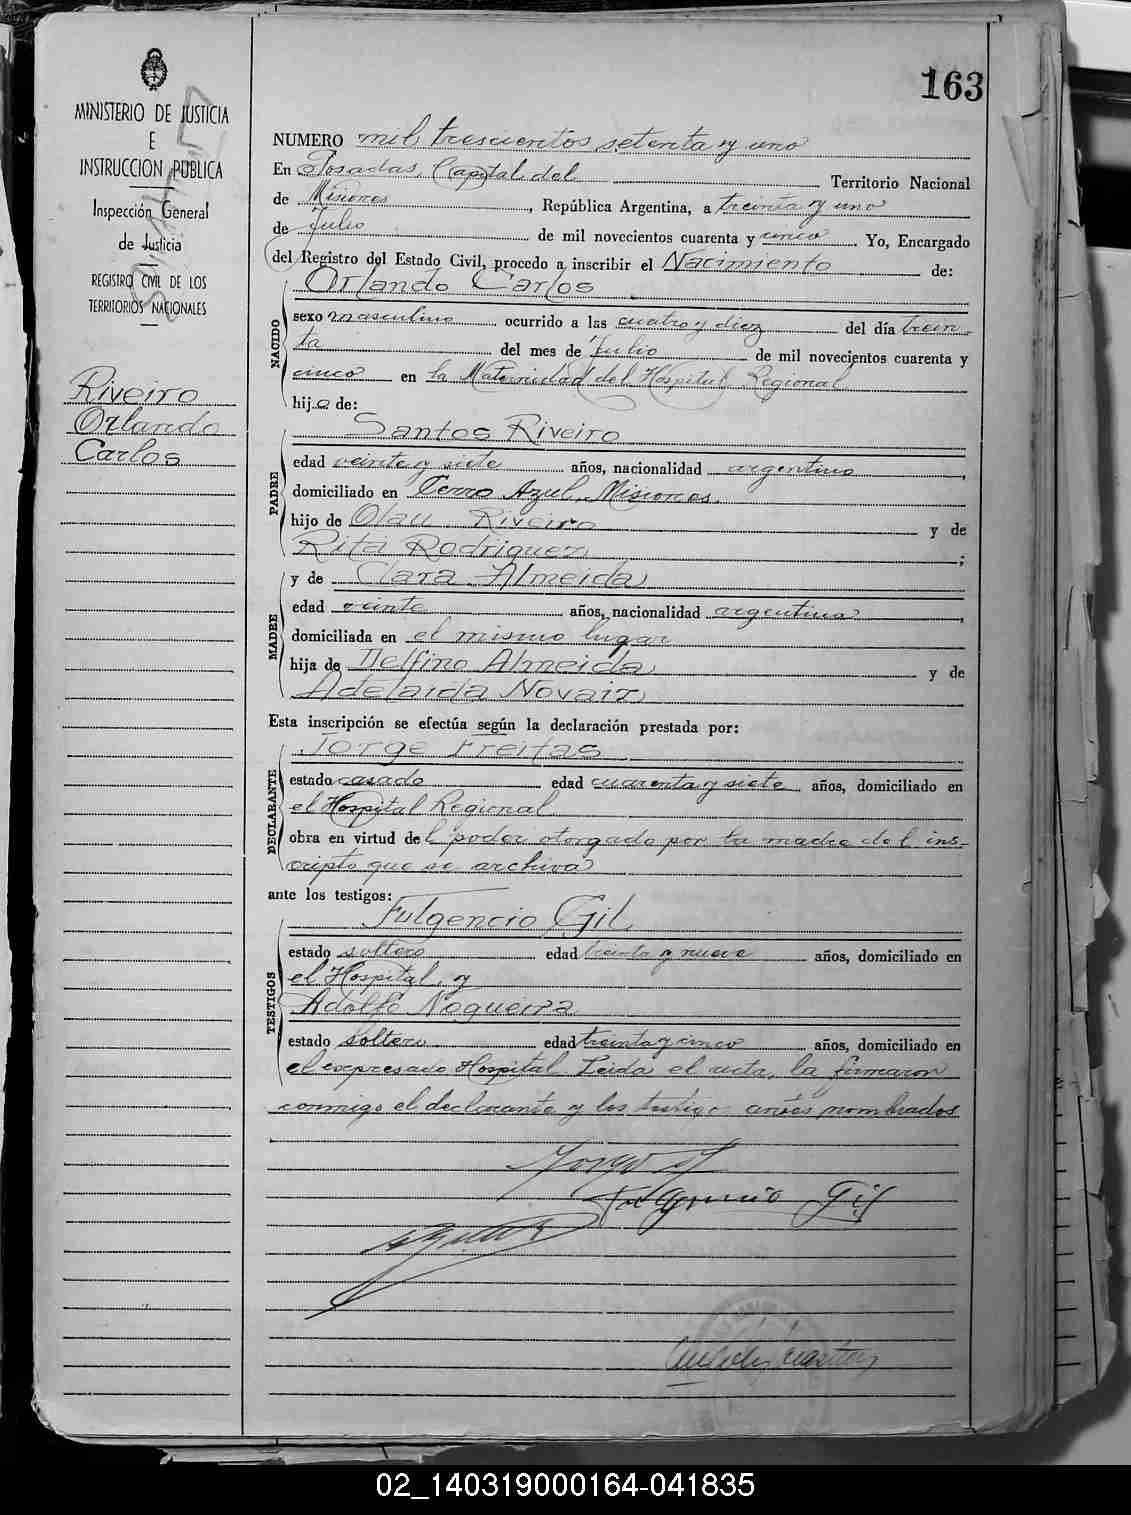 163
MINISTERIO DE JUSTICIA
E
INSTRUCCION PUBLICA
Inspección General
de Justicia
REGISTRO CIVIL DE LOS
TERRITORIOS NACIONALES
Riveiro
Orlando
Carlos
NUMERO mil trescientos setenta y uno
En Posadas, Capital del Territorio Nacional
de Misiones, República Argentina, a treinta y uno
de Julio de mil novecientos cuarenta y cinco Yo, Encargado
del Registro del Estado Civil, procedo a inscribir el Nacimiento de:
Orlando Carlos
NACIDO
sexo masculino ocurrido a las cuatro y diez del día trein-
ta del mes de Julio de mil novecientos cuarenta y
cinco en la Maternidad del Hospital Regional
hijo de:
Santos Riveiro
PADRE
edad veinte y siete años, nacionalidad argentino,
domiciliado en Cerro Azul, Misiones.
hijo de Olau Riveiro y de
Rita Rodriguez;
y de Clara Almeida
MADRE
edad veinte años, nacionalidad argentina,
domiciliada en el mismo lugar
hija de Delfino Almeida y de
Adelaida Novair
Esta inscripción se efectúa según la declaración prestada por:
Jorge Freitas
DECLARANTE
estado casado edad cuarenta y siete años, domiciliado en
el Hospital Regional
obra en virtud del poder otorgado por la madre del ins-
cripto que se archiva
ante los testigos:
Fulgencio Gil
TESTIGOS
estado soltero edad treinta y nueve años, domiciliado en
el Hospital, y
Adolfo Nogueira
estado soltero edad treinta y cinco años, domiciliado en
el expresado Hospital. Leida el acta, la firmaron
conmigo el declarante y los testigos antes nombrados
Fulgencio Gil
02_140319000164-041835